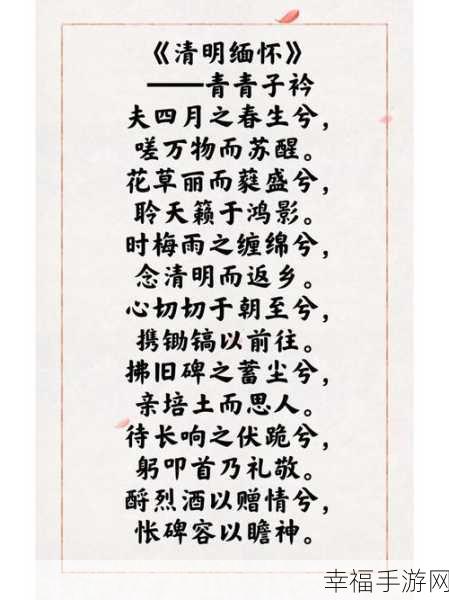 《清明缅怀》
——青青子衿
夫四月之春生兮，
嗟万物而苏醒。
花草丽而蕤盛兮，
聆天籁于鸿影。
时梅雨之缠绵兮，
念清明而返乡。
心切切于朝至兮，
携锄镐以前往。
拂旧碑之蓄尘兮，
亲培土而思人。
待长响之伏跪兮，
躬叩首乃礼敬。
酹烈酒以赠情兮，
怅碑容以瞻神。
幸福手游网